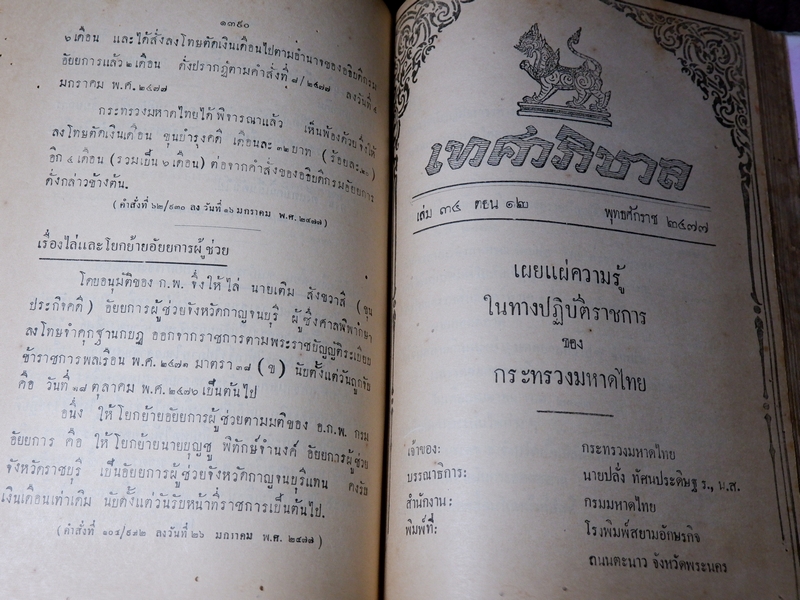 ๑๓๙๐
๖ เดือน และได้สั่งลงโทษตัดเงินเดือนไปตามอำนาจของอธิบดีกรม
อัยยการแล้ว ๒ เดือน ดั่งปรากฏตามคำสั่งที่ ๗/๒๔๗๗ ลงวันที่
มกราคม พ.ศ. ๒๔๗๗
กระทรวงมหาดไทยได้พิจารณาแล้ว เห็นพ้องด้วยจึ่งให้
ลงโทษตัดเงินเดือน ขุนบำรุงคดี เดือนละ ๓๒ บาท (ร้อยละ ๒๐)
อีก ๔ เดือน (รวมเป็น ๖ เดือน) ต่อจากคำสั่งของอธิบดีกรมอัยยการ
ดั่งกล่าวข้างต้น.
(คำสั่งที่ ๖๒/๙๓๐ ลงวันที่ ๑๖ มกราคม พ.ศ. ๒๔๗๗)
เรื่องไล่และโยกย้ายอัยยการผู้ช่วย
โดยอนุมัติของ ก.พ. จึ่งให้ไล่ นายเดิม สังขวาสี (ขุน
ประกิจคดี) อัยยการผู้ช่วยจังหวัดกาญจนบุรี ผู้ซึ่งศาลพิพากษา
ลงโทษจำคุกฐานกบฏ ออกจากราชการตามพระราชบัญญัติระเบียบ
ข้าราชการพลเรือน พ.ศ. ๒๔๗๑ มาตรา ๓๘ (ข) นับตั้งแต่วันถูกจับ
คือ วันที่ ๑๘ ตุลาคม พ.ศ. ๒๔๗๖ เป็นต้นไป
อนึ่ง ให้โยกย้ายอัยยการผู้ช่วยตามมติของ อ.ก.พ. กรม
อัยยการ คือ ให้โยกย้ายนายบุญชู พิทักษ์จำนงค์ อัยยการผู้ช่วย
จังหวัดราชบุรี เป็นอัยยการผู้ช่วยจังหวัดกาญจนบุรีแทน คงรับ
เงินเดือนเท่าเดิม นับตั้งแต่วันรับหน้าที่ราชการเป็นต้นไป.
(คำสั่งที่ ๑๐๔/๙๗๒ ลงวันที่ ๒๖ มกราคม พ.ศ. ๒๔๗๗)
เทศาภิบาล
เล่ม ๓๔ ตอน ๑๒ พุทธศักราช ๒๔๗๗
เผยแผ่ความรู้
ในทางปฏิบัติราชการ
ของ
กระทรวงมหาดไทย
เจ้าของ: กระทรวงมหาดไทย
บรรณาธิการ: นายปลั่ง ทัศนประดิษฐ ร., น.ส.
สำนักงาน: กรมมหาดไทย
พิมพ์ที่: โรงพิมพ์สยามอักษรกิจ
ถนนตะนาว จังหวัดพระนคร